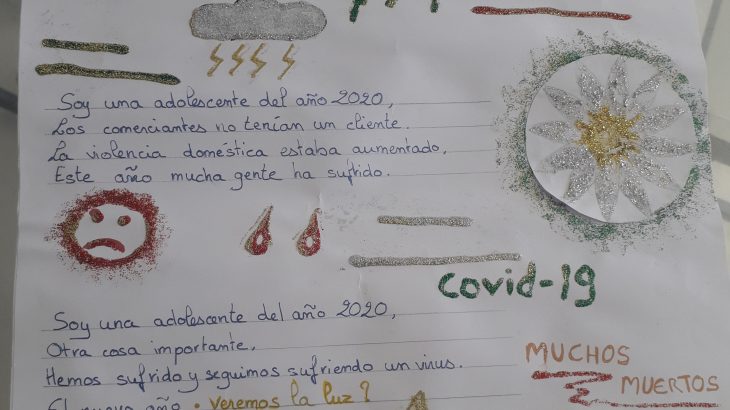 Soy una adolescente del año 2020,
Los comerciantes no tenían un cliente.
La violencia doméstica estaba aumentado.
Este año mucha gente ha sufrido.
covid-19
Soy una adolescente del año 2020,
Otra cosa importante,
Hemos sufrido y seguimos sufriendo un virus.
El nuevo año . veremos la luz?
MUCHOS
MUERTOS